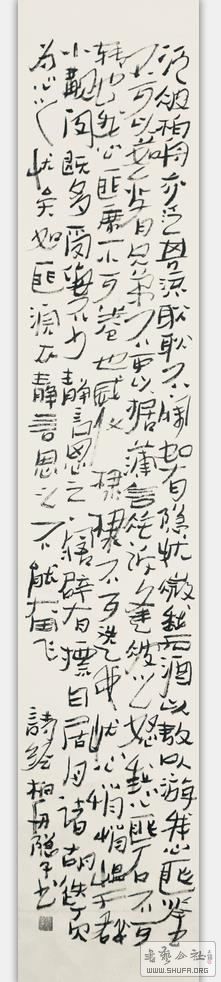 汎彼柏舟亦汎其流耿耿不寐如有隐忧微我無酒以敖以游我心匪鉴
不可以茹亦有兄弟不可以据薄言往诉逢彼之怒我心匪石不可
转也我心匪席不可卷也威仪棣棣不可选也忧心悄悄愠于群
小觏闵既多受侮不少静言思之寤辟有摽日居月诸胡迭而
微心之忧矣如匪浣衣静言思之不能奋飞 詩经柏舟隐子书
书艺公社
WWW.SHUFA.ORG